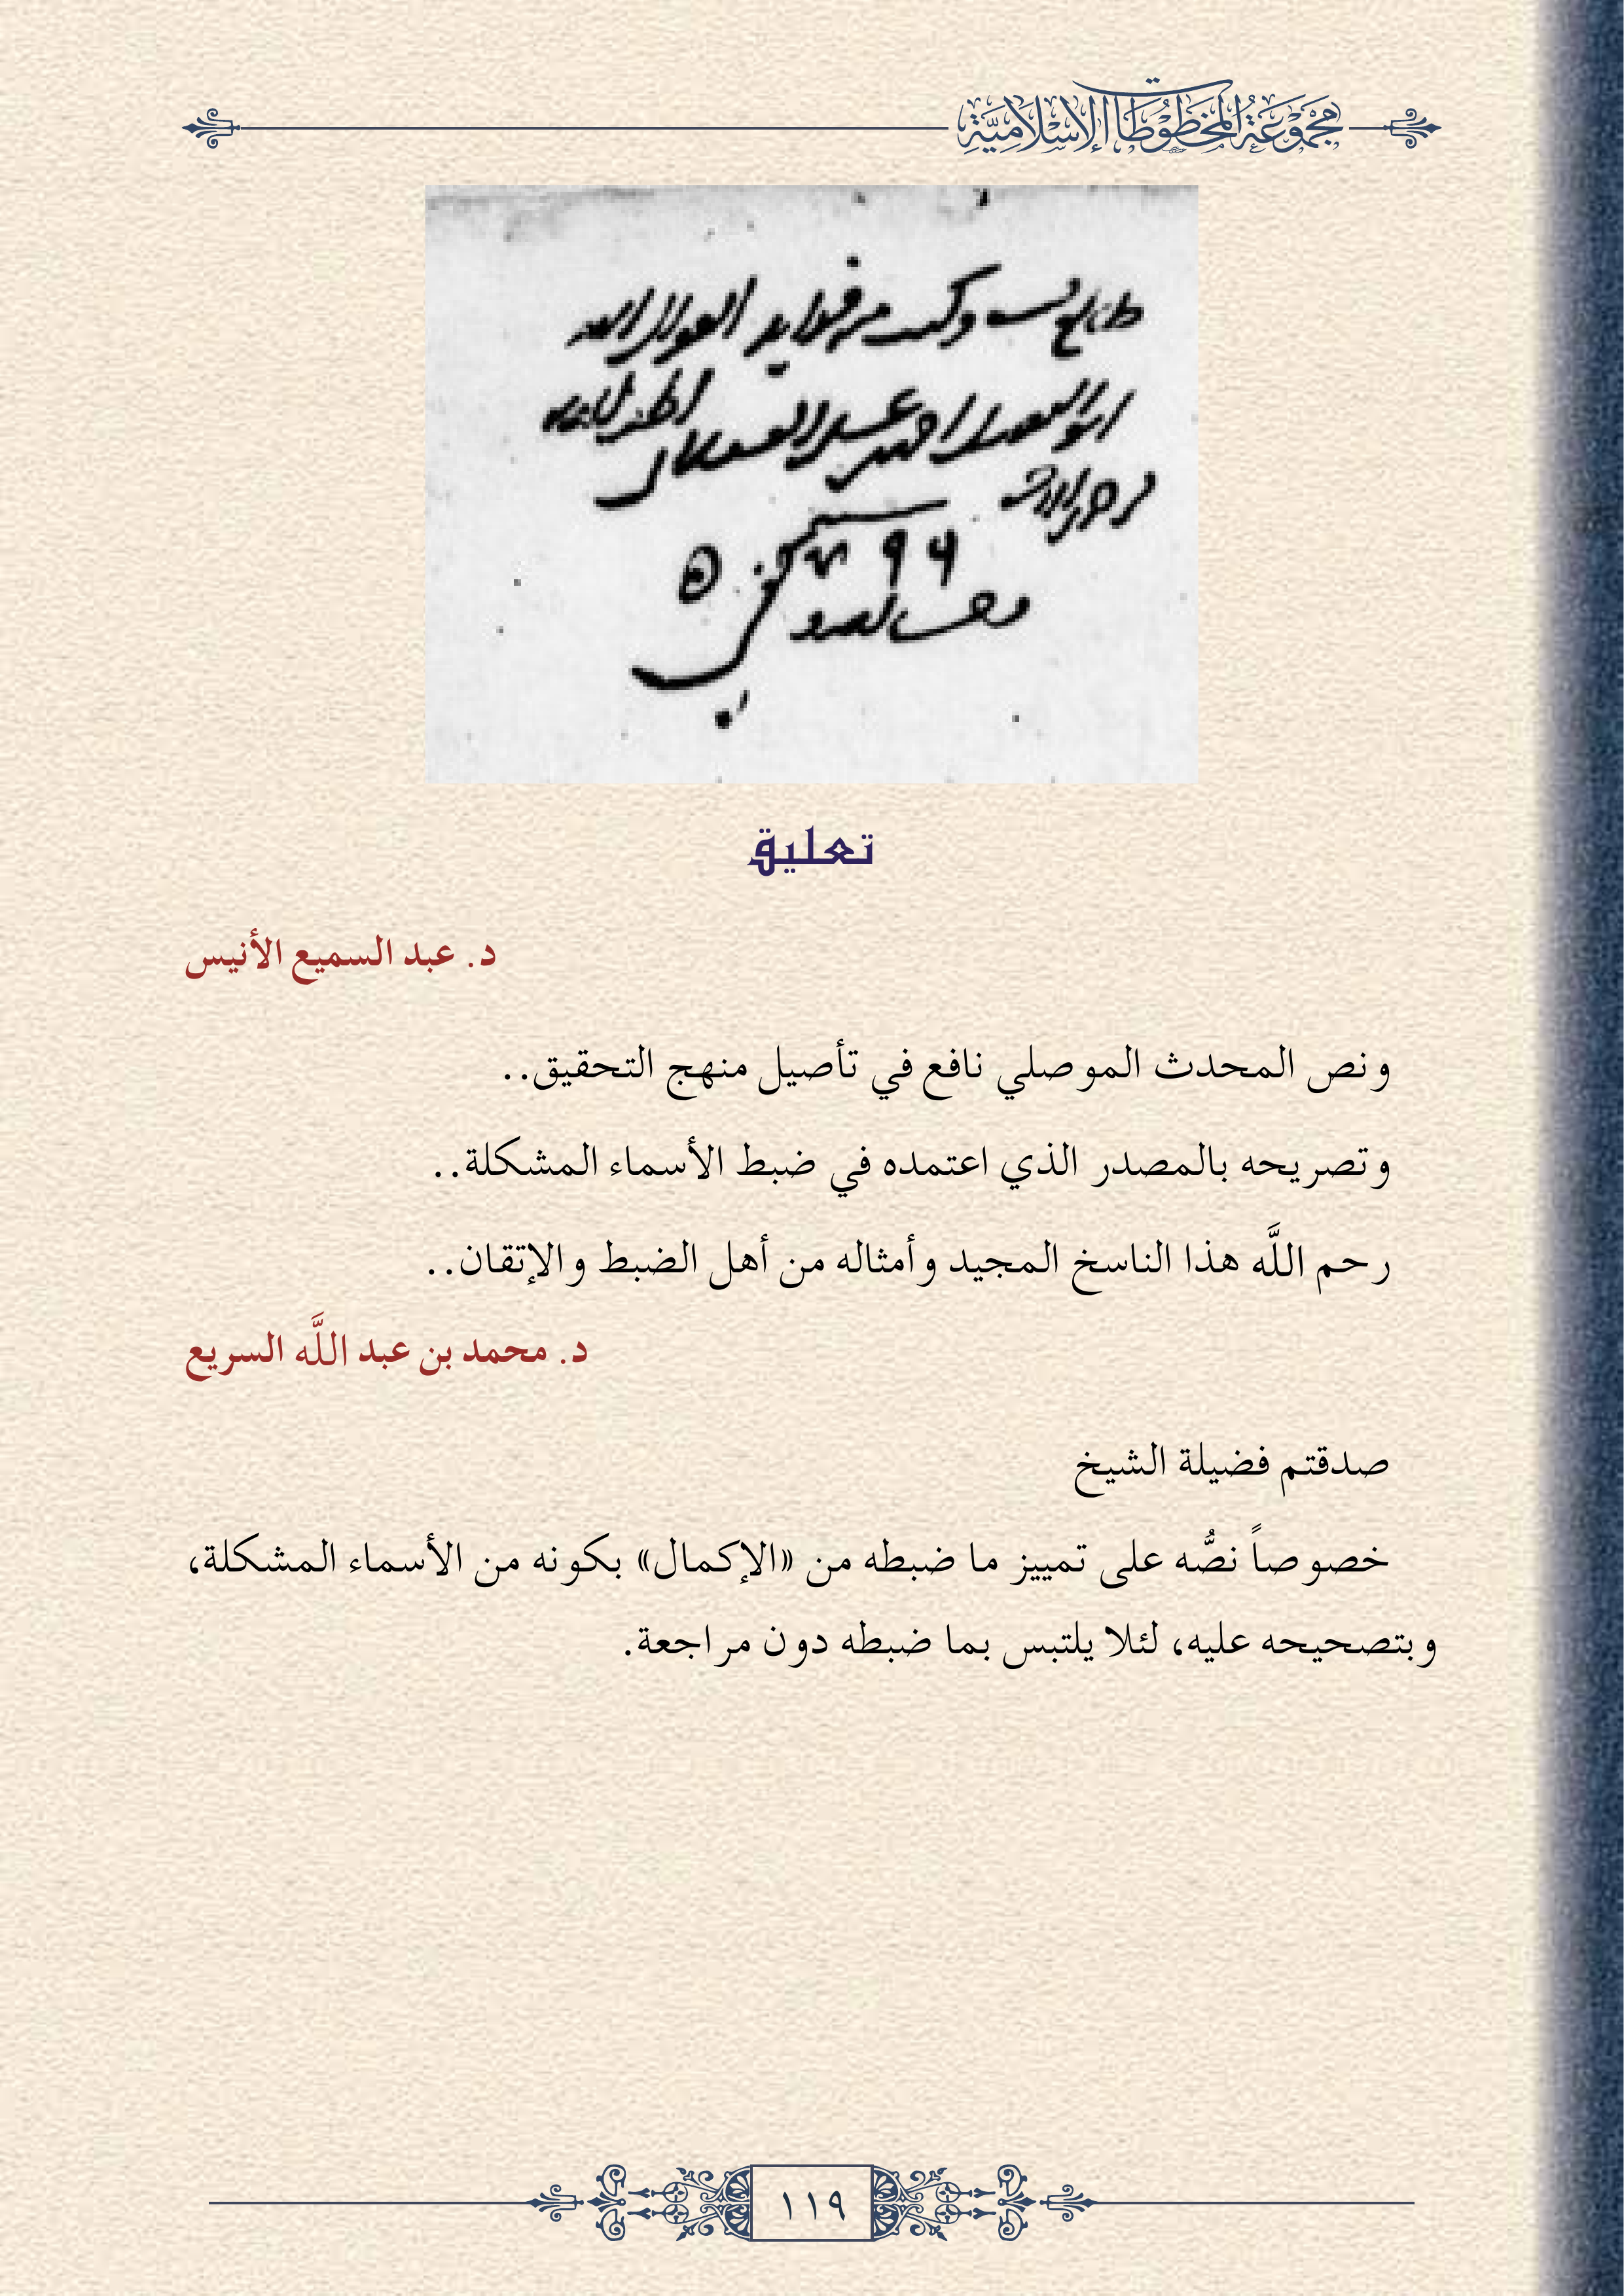 مَجْمُوْعَةُ المَخْطُوْطَاتِ الإِسْلَامِيَّةِ
ابو الفضل احمد
تعليق
د. عبد السميع الأنيس
ونص المحدث الموصلي نافع في تأصيل منهج التحقيق..
وتصريحه بالمصدر الذي اعتمده في ضبط الأسماء المشكلة..
رحم اللَّه هذا الناسخ المجيد وأمثاله من أهل الضبط والإتقان..
د. محمد بن عبد اللَّه السريع
صدقتم فضيلة الشيخ
خصوصاً نصُّه على تمييز ما ضبطه من «الإكمال» بكونه من الأسماء المشكلة،
وبتصحيحه عليه، لئلا يلتبس بما ضبطه دون مراجعة.
١١٩